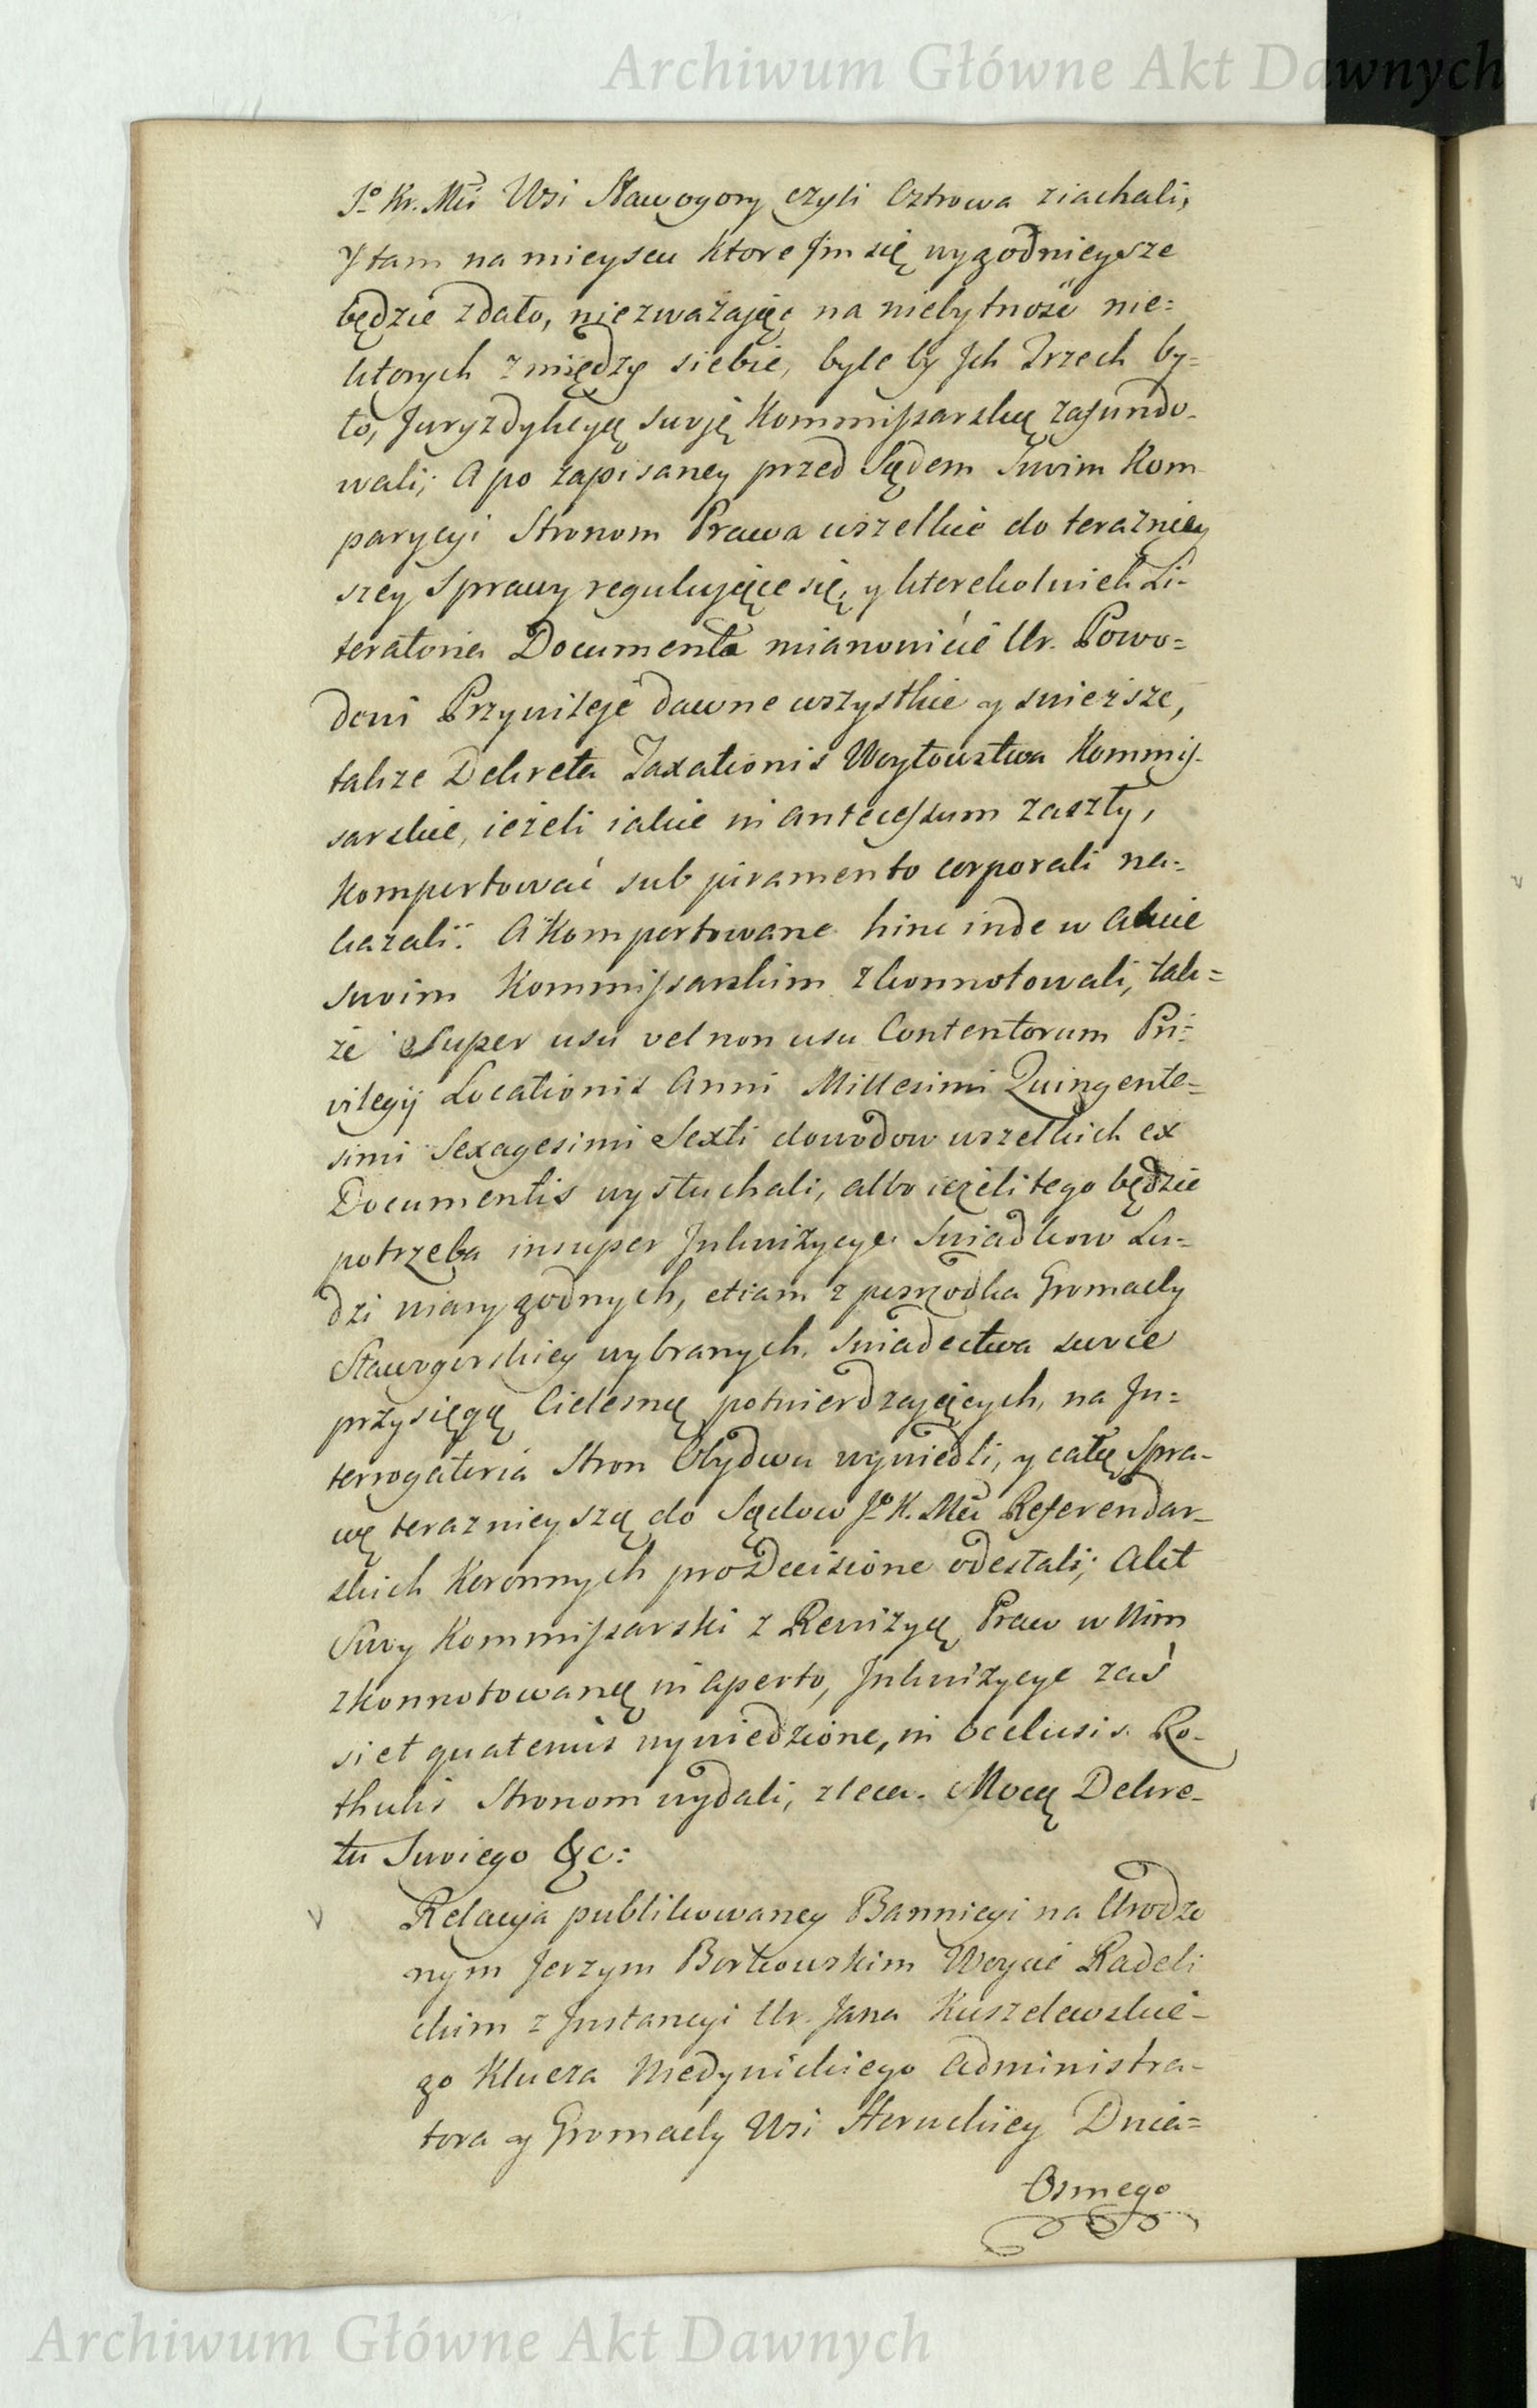 Archiwum Główne Akt Dawnych
Jo Kr. Mci Wsi Sławogory czyli Ostrowa ziachali,
Y tam na mieyscu ktore Jm się wygodnieysze
będzie zdało, niezważaiąc na niebytność nie=
ktorych z między siebie, byle by Jch Trzech by=
ło, Juryzdykcyą swoię Kommissarską zafundo-
wali; A po zapisaney przed Sądem Swoim Kom
parycyi Stronom Prawa wszelkie do teraźniey
szey Sprawy reguluiące się, y ktorekolwiek Li-
teratoria Documenta mianowicie Ur. Powo=
dowi Przywileje dawne wszystkie y swieższe,
takze Dekreta Taxationis Woytowstwa Kommis-
sarskie, ieżeli iakie in antecessum zaszły,
Komportować sub juramento corporali na=
kazali: A Komportowane hinc inde w Akcie
swoim Kommissarskim zkonnotowali, tak=
że Super usu vel non usu Contentorum Pri=
vilegij Locationis Anni Millesimi Quingente=
simi Sexagesimi Sexti dowodow wszelkich ex
Documentis wysłuchali, albo ieżeli tego będzie
potrzeba insuper Jnkwizycye Swiadkow Lu=
dzi wiary godnych, etiam z pośrzodka Gromady
Sławogorskiey wybranych, Swiadectwa swoie
przysięgą Cielesną potwierdzaiących, na Jn=
terrogatoria Stron Obydwu wywiedli, y całą Spra-
wę teraznieyszą do Sądow Jo K. Mci Referendar-
skich Koronnych pro Decisione odesłali; Akt
Swoy Kommissarski z Rewizyą Praw w Nim
zkonnotowaną in aperto, Jnkwizycye zaś
si et quatenus wywiedzione, in occlusis Ro-
thulis Stronom wydali, zleca. Mocą Dekre-
tu Swoiego &c:
Relacya publikowaney Bannicyi na Urodzo
nym Jerzym Borkowskim Woycie Radeli
ckim z Jnstancyi Ur. Jana Kuszelewskie-
go Klucza Medynickiego Administra-
tora y Gromady Wsi Horuckiey Dnia=
Osmego
Archiwum Główne Akt Dawnych